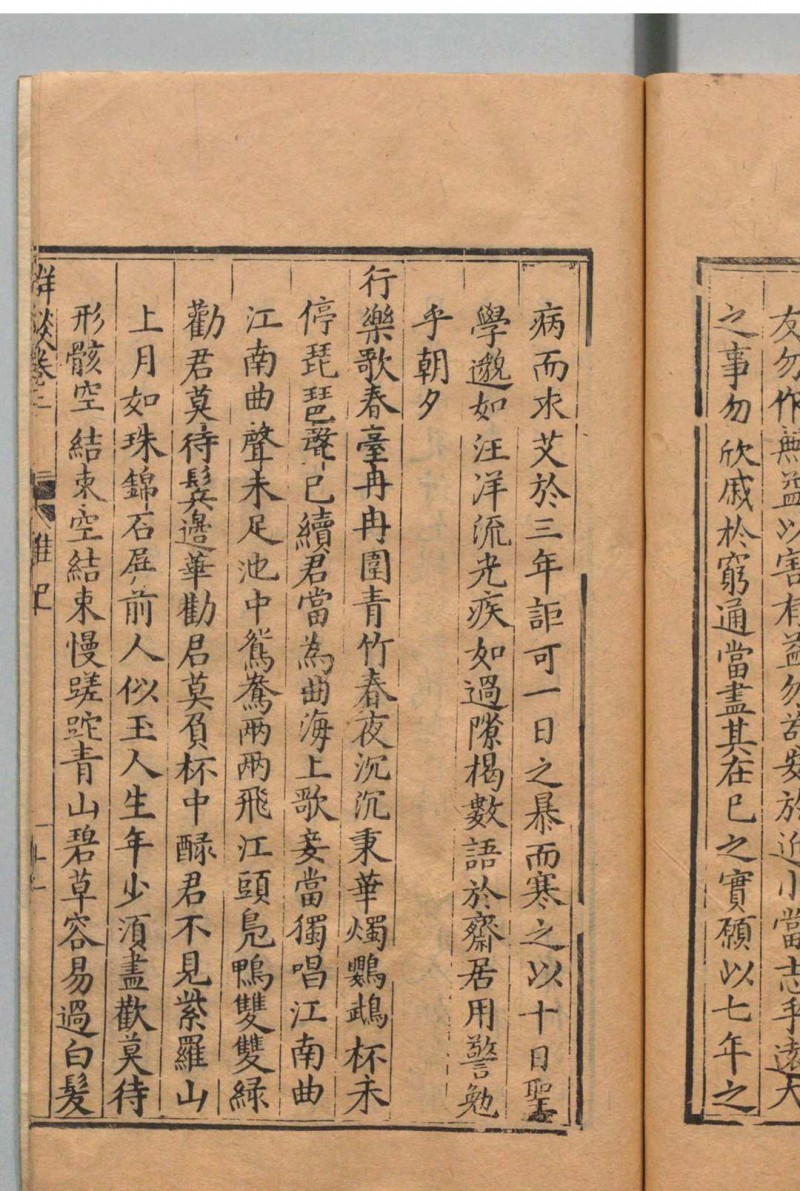 友勿作無益以害有益勿苟安於近小當志乎遠大
之事勿欣戚於窮通當盡其在已之實願以七年之
病而求艾於三年詎可一日之暴而寒之以十日聖
學邈如汪洋流光疾如過隙揭數語於齋居用警勉
乎朝夕
行樂歌春臺冉冉圍青竹春夜沉沉秉華燭鸚鵡杯未
停琵琶聲已續君當為曲海上歌妾當獨唱江南曲
江南曲聲未足池中鴛鴦兩兩飛江頭鳧鴨雙雙綠
勸君莫待鬂邊華勸君莫負杯中醁君不見紫羅山
上月如珠錦石屏前人似玉人生年少須盡歡莫待
形骸空結束空結束慢蹉跎青山碧草容易過白髮